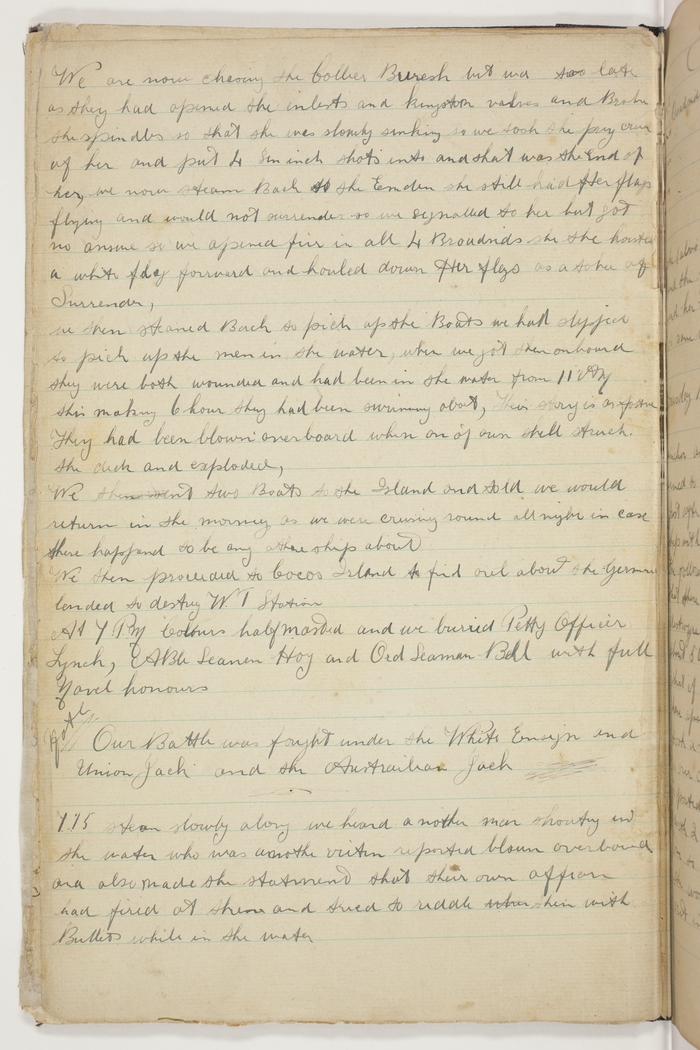 We are now chasing the Collier Buresk but was too late
as they had opened the inlets and kingston valves and Broke
the spindles so that she was slowly sinking so we took the prize crew
of her and put 4 6in inch shots into and that was the End of
her, we now steam Back to the Emden she still had Her flags
flying and would not surrender so we signalled to her but got
no answe so we opened fire in all 4 Broadsids she she hoisted
a white flag forward and hauled down Her flags as a token of
Surrender,
we then steamed Back to pick up the Boats we had slipped
to pick up the men in the water, when we got them onboard
they were both wounded and had been in the water from 11
this making 6 hour they had been swiming about, Their story is as
They had been blown overboard when on of our shell struck
the deck and exploded,
We then sent two Boats to the Island and told we would
return in the morning as we were crusing round all night in case
there happand to be any other ships about
We then proceeded to Cocos Island to find out about the Germans
landed to destroy W T Station
At 7 PM Colours halfmasted and we buried Petty Officer
Lynch, EABle Seamen Hoy and Ord Seaman Bell with full
Navel honours
Our Battle was fought under the White Ensign and
Union Jack and the Austrailian Jack
7.15 steam slowly along we heard another man shouting in
the water who was anothe victim reported blown overboard
and also made the statment that their own officers
had fired at them and tried to riddle them with
Bullets while in the water